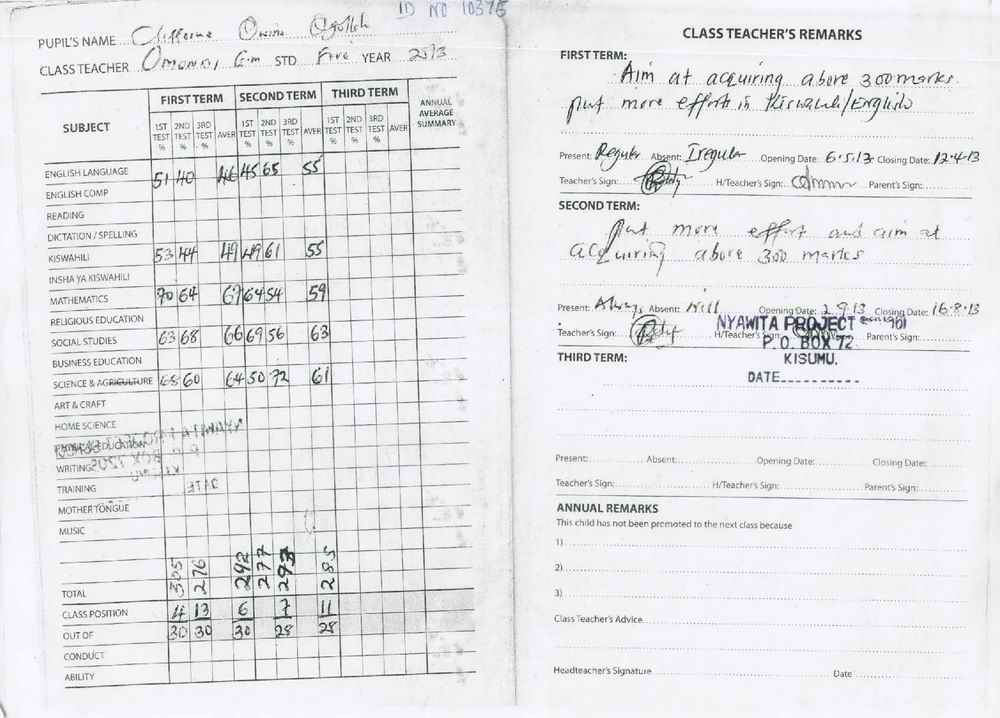 ID NO 10375
PUPIL'S NAME Clifferine Owino Ogolleh
CLASS TEACHER Omondi G.m STD Five YEAR 2013
SUBJECT FIRST TERM SECOND TERM THIRD TERM ANNUAL AVERAGE SUMMARY
1ST TEST % 2ND TEST % 3RD TEST % AVER 1ST TEST % 2ND TEST % 3RD TEST % AVER 1ST TEST % 2ND TEST % 3RD TEST % AVER
ENGLISH LANGUAGE 51 40 46 45 65 55
ENGLISH COMP
READING
DICTATION / SPELLING
KISWAHILI 53 44 49 49 61 55
INSHA YA KISWAHILI
MATHEMATICS 70 64 67 64 54 59
RELIGIOUS EDUCATION
SOCIAL STUDIES 63 68 66 69 56 63
BUSINESS EDUCATION
SCIENCE & AGRICULTURE 68 60 64 50 72 61
ART & CRAFT
HOME SCIENCE
WRITING
TRAINING
MOTHER TONGUE
MUSIC
TOTAL 305 276 292 277 293 285
CLASS POSITION 4 13 6 7 11
OUT OF 30 30 30 28 28
CONDUCT
ABILITY
CLASS TEACHER'S REMARKS
FIRST TERM:
Aim at acquiring above 300 marks
put more effort in Kiswahili/English
Present: Regular Absent: Iregular Opening Date: 6.5.13 Closing Date: 12.4.13
Teacher's Sign: H/Teacher's Sign: Parent's Sign:
SECOND TERM:
Put more effort and aim at
acquiring above 300 marks
Present: Always Absent: Nill Opening Date: 2.9.13 Closing Date: 16.8.13
Teacher's Sign: H/Teacher's Sign: Parent's Sign:
NYAWITA PROJECT
P.O. BOX 72
KISUMU.
DATE
THIRD TERM:
Present: Absent: Opening Date: Closing Date:
Teacher's Sign: H/Teacher's Sign: Parent's Sign:
ANNUAL REMARKS
This child has not been promoted to the next class because
1)
2)
3)
Class Teacher's Advice
Headteacher's Signature Date